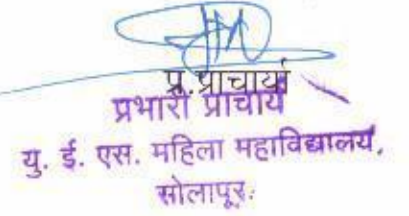 प्र.प्राचार्या
प्रभारी प्राचार्य
यु. ई. एस. महिला महाविद्यालय,
सोलापूर.